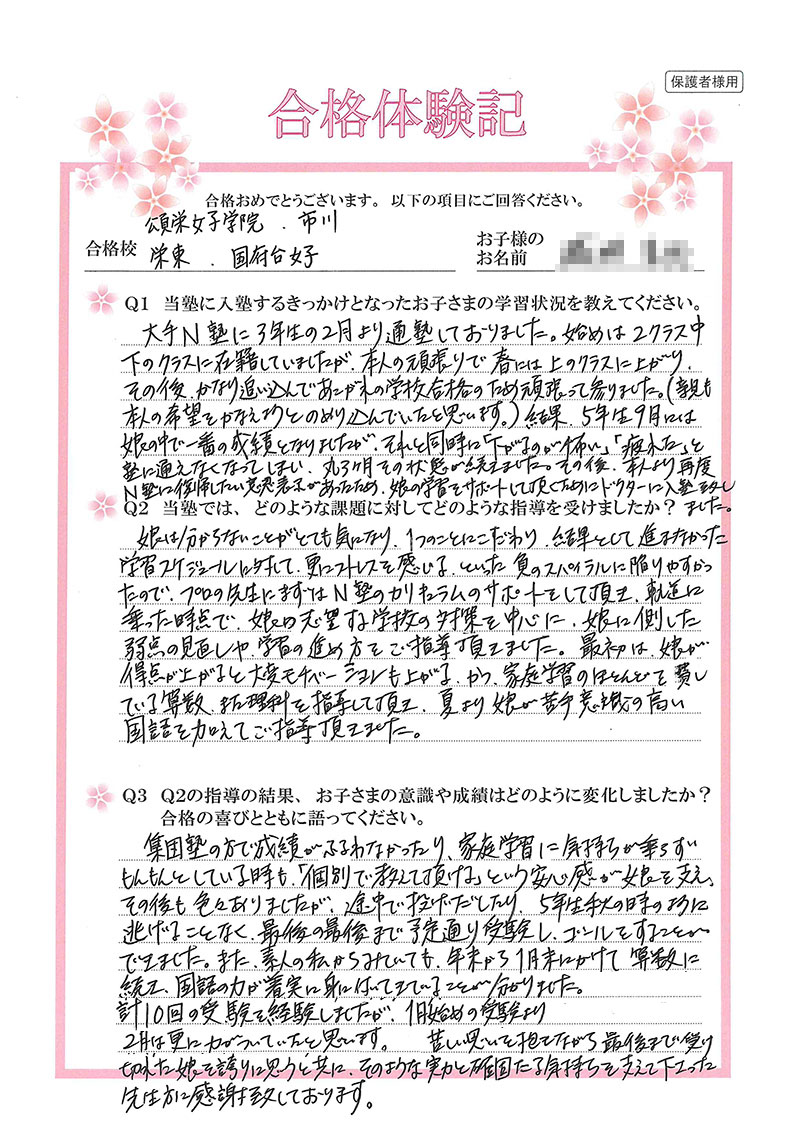 保護者様用
合格体験記
合格おめでとうございます。以下の項目にご回答ください。
合格校
頌栄女子学院 . 市川
栄東 . 国府台女子
お子様の
お名前
Q1 当塾に入塾するきっかけとなったお子さまの学習状況を教えてください。
大手N塾に3年生の2月より通塾しておりました。始めは2クラス中
下のクラスに在籍していましたが、本人の頑張りで春には上のクラスに上がり、
その後、かなり追い込んであこがれの学校合格のため頑張って参りました。(親も
本人の希望をかなえようとのめり込んでいたと思います。)結果、5年生9月には
娘の中で一番の成績となりましたが、それと同時に「下がるのが怖い」「疲れた」と
塾に通えなくなってしまい、丸3ヶ月その状態が続きました。その後、本人より再度
N塾に復帰したい意思表示があったため、娘の学習をサポートして頂くためにドクターに入塾致し
ました。
Q2 当塾では、どのような課題に対してどのような指導を受けましたか？
娘は分からないことがとても気になり、1つのことにこだわり、結果として進まなかった
学習スケジュールに対して、更にストレスを感じる、といった負のスパイラルに陥りやすかっ
たので、プロの先生にまずはN塾のカリキュラムのサポートをして頂き、軌道に
乗った時点で、娘の志望する学校の対策を中心に、娘に側した
弱点の見直しや、学習の進め方をご指導頂きました。最初は、娘が
得点が上がると大変モチベーションも上がる、かつ、家庭学習のほとんどを費し
ている算数、また理科を指導して頂き、夏より娘が苦手意識の高い
国語を加えてご指導頂きました。
Q3 Q2の指導の結果、お子さまの意識や成績はどのように変化しましたか？
合格の喜びとともに語ってください。
集団塾の方で成績がふるわなかったり、家庭学習に気持ちが乗らず
もんもんとしている時も、「個別で教えて頂ける」という安心感が娘を支え、
その後も色々ありましたが、途中で投げだしたり、5年生秋の時のように
逃げることなく、最後の最後まで予定通り受験し、ゴールをすることが
できました。また、素人の私からみていても、年末から1月末にかけて算数に
続き、国語の力が着実に身についてきていることが分かりました。
計10回の受験を経験しましたが、1月始めの受験より
2月は更に力がついていたと思います。 苦しい思いを抱きながら最後まで受け
切れた娘を誇りに思うと共に、そのような実力と確固たる気持ちを支えて下さった
先生方に感謝致しております。